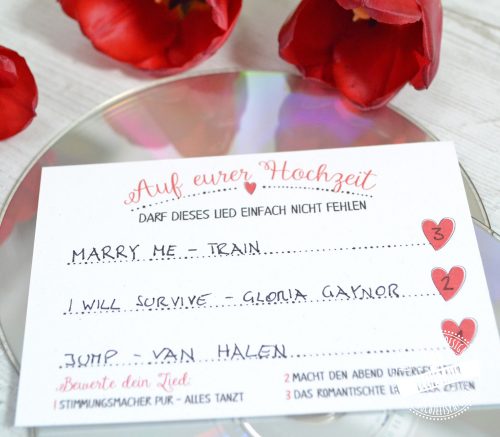 Auf eurer Hochzeit
DARF DIESES LIED EINFACH NICHT FEHLEN
MARRY ME - TRAIN 3
I WILL SURVIVE - GLORIA GAYNOR 2
JUMP - VAN HALEN
Bewerte dein Lied:
1 STIMMUNGSMACHER PUR - ALLES TANZT
2 MACHT DEN ABEND
3 DAS ROMANTISCHTE